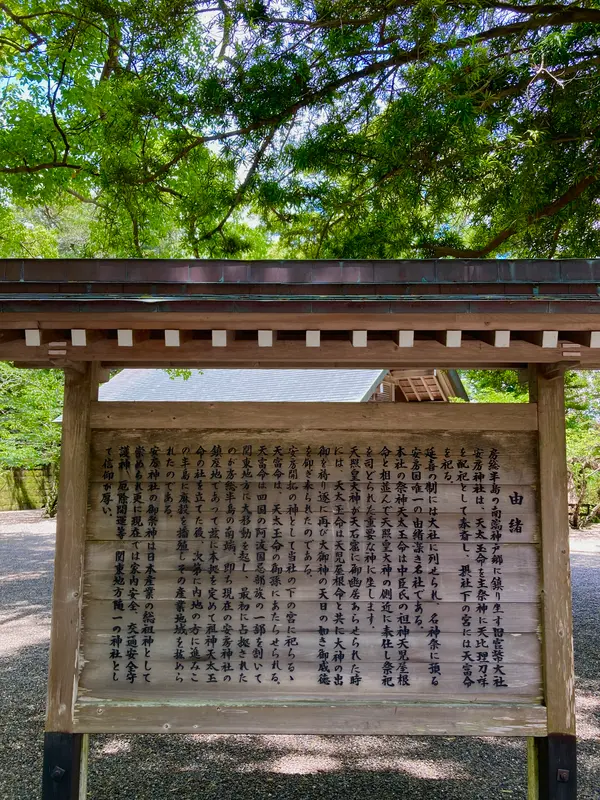 由緒
房総半島の南端神戸郷に鎮り坐す旧官幣大社
安房神社は、天太玉命を主祭神に天比理刀咩命
を配祀として奉斎し、摂社下の宮には天富命
を祀る。
延喜の制には大社に列せられ、名神祭に預る
安房国唯一の由緒謹き大社である。
本社の祭神天太玉命は中臣氏の祖神天児屋根
命と相並んで天照皇大神の側近に奉仕し祭祀
を司どられた重要な神に坐します。
天照皇大神が天石窟に御幽居あらせられた時
には、天太玉命は天児屋根命と共に大神の出
御を祷り遂に再び大御神の天日の如き御威徳
を仰ぎ奉られたのである。
安房開拓の神として当社の下の宮に祀らるゝ
天富命は、天太玉命の御孫にあたらせられる。
天富命は四国の阿波国忌部族の一部を割いて
関東地方に大移動を起し、最初に占拠された
のが房総半島の南端、即ち現在の安房神社の
鎮座地であって故に本拠を定めて祖神天太玉
命の社を立てた後、次第に内地の方に進みこ
の半島に麻穀を播殖し、その産業地域を拡めら
れたのである。
安房神社の御祭神は日本産業の総祖神として
崇められ更に現在では家内安全、交通安全守
護神、厄除開運等、関東地方随一の神社とし
て信仰が厚い。